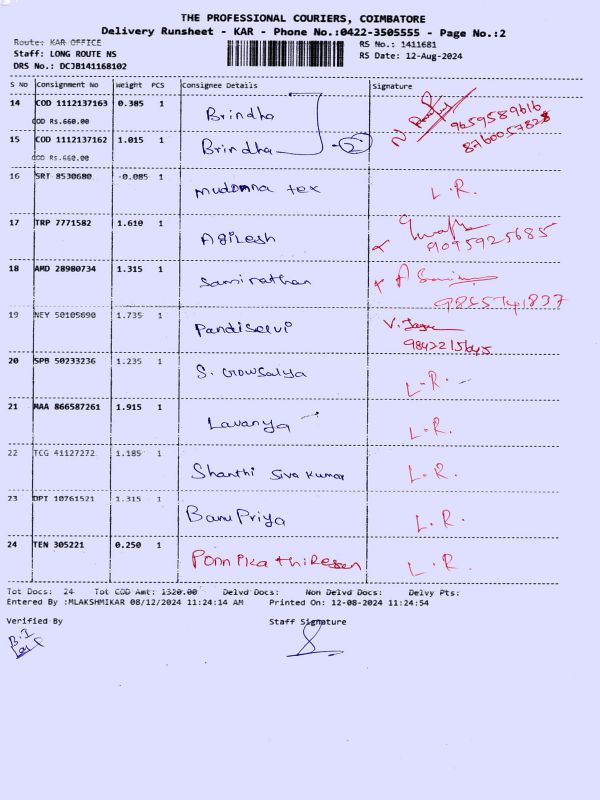 THE PROFESSIONAL COURIERS, COIMBATORE
Delivery Runsheet - KAR - Phone No.:0422-3505555 - Page No.:2
Route: KAR OFFICE
RS No.: 1411681
Staff: LONG ROUTE NS
RS Date: 12-Aug-2024
DRS No.: DCJB141168102
S No Consignment No Weight PCS Consignee Details Signature
14 COD 1112137163 0.385 1 Brindha
COD Rs.660.00 9659589616
15 COD 1112137162 1.015 1 Brindha 2
COD Rs.660.00
16 SRT 8530680 -0.085 1 tex L.R.
17 TRP 7771582 1.610 1 Agilesh
18 AMD 28980734 1.315 1 Samirathan
19 NEY 50105690 1.735 1 Pandiselvi
9842215645
20 SPB 50233236 1.235 1 S. Gowsalya L.R.
21 MAA 866587261 1.915 1 Lavanya L.R.
22 TCG 41127272 1.185 1 Shanthi Siva Kumar L.R.
23 DPT 10761521 1.315 1 Banu Priya L.R.
24 TEN 305221 0.250 1 L.R.
Tot Docs: 24 Tot COD Amt: 1320.00 Delvd Docs: Non Delvd Docs: Delvy Pts:
Entered By :MLAKSHMIKAR 08/12/2024 11:24:14 AM Printed On: 12-08-2024 11:24:54
Verified By Staff Signature